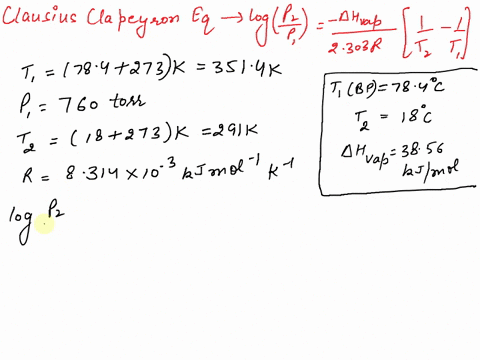 Clausius Clapeyron Eq → log(P2/P1) = -ΔHvap/2.303R [1/T2 - 1/T1]
T1 = (78.4+273)K = 351.4K
P1 = 760 torr
T2 = (18+273)K = 291K
R = 8.314 × 10^-3 kJ mol^-1 K^-1
log P2
T1 (BP) = 78.4°C
T2 = 18°C
ΔHvap = 38.56
kJ/mol